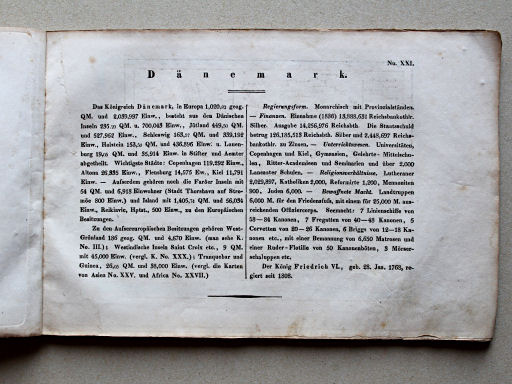 No. XXI.
Dänemark.
Das Königreich Dänemark, in Europa 1,020,02 geog.
QM. und 2,039,997 Einw., besteht aus den Dänischen
Inseln 235,70 QM. u. 700,043 Einw., Jütland 449,50 QM.
und 527,962 Einw., Schleswig 163,97 QM und 339,192
Einw., Holstein 153,50 QM und 436,896 Einw. u. Lauen-
burg 19,05 QM und 35,914 Einw. in Stifter und Aemter
abgetheilt. Wichtigste Städte: Copenhagen 119,292 Einw.,
Altona 26,393 Einw., Flensburg 14,575 Ew., Kiel 11,791
Einw. — Ausserdem gehören noch die Faröer Inseln mit
54 QM. und 6,928 Einwohner (Stadt Thorshavn auf Stro-
möe 800 Einw.) und Island mit 1,405,74 QM und 56,034
Einw., Reikiavic, Hptst., 500 Einw., zu den Europäischen
Besitzungen.
Zu den Aussereuropäischen Besitzungen gehören West-
Grönland 186 geog. QM. und 4,670 Einw. (man sehe K.
No. III.); Westindische Inseln Saint Croix etc., 9 QM.
mit 45,000 Einw. (vergl. K. No. XXX.); Tranquebar und
Guinea, 26,05 QM und 38,000 Einw. (vergl. die Karten
von Asien No. XXV. und Africa No. XXVII.)
Regierungsform. Monarchisch mit Provinzialständen.
— Finanzen. Einnahme (1836) 13,988,631 Reichsbankthlr.
Silber. Ausgabe 14,256,976 Reichsbth. Die Staatsschuld
betrug 126,185,513 Rchsbth. Silber und 2,448,697 Reichs-
bankothlr. zu Zinsen. — Unterrichtswesen. Universitäten,
Copenhagen und Kiel, Gymnasien, Gelehrte- Mittelschu-
len, Ritter-Academieen und Seminarien und über 2,000
Lancaster Schulen. — Religionsverhältnisse, Lutheraner
2,029,897, Katholiken 2,000, Reformirte 1,200, Menoniten
900, Juden 6,000. — Bewaffnete Macht. Landtruppen
6,000 M. für den Friedensfuss, mit einem für 25,000 M. aus-
reichenden Officiercorps. Seemacht: 7 Linienschiffe von
58—84 Kanonen, 7 Fregatten von 40—48 Kanonen, 5
Corvetten von 20—26 Kanonen, 6 Briggs von 12—18 Ka-
nonen etc., mit einer Bemannung von 6,650 Matrosen und
einer Ruder-Flotille von 50 Kanonenböten, 3 Mörser-
schaloppen etc.
Der König Friedrich VI., geb. 28. Jan. 1768, re-
giert seit 1808.